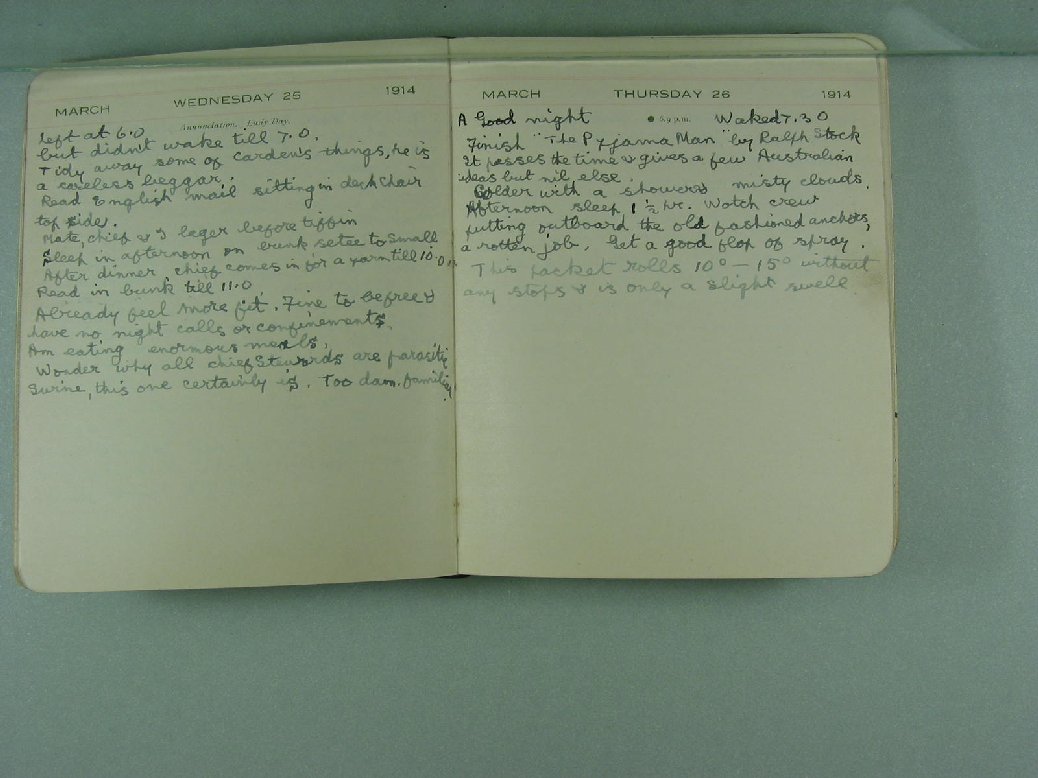 MARCH WEDNESDAY 25 1914
Annunciation. Lady Day.
left at 6.0
but didn't wake till 7.0.
Tidy away some of Carden's things, he is
a careless beggar.
Read English mail sitting in deck chair
top side.
Mate, chief & I lager before tiffin
Sleep in afternoon on bunk setee to small
After dinner, chief comes in for a yarn till 10.0
Read in bunk till 11.0
Already feel more fit. Fine to be free &
have no night calls or confinements.
Am eating enormous meals.
Wonder why all chief Stewards are parasitic
swine, this one certainly is. Too dam. familiar.
MARCH THURSDAY 26 1914
A Good night Waked 7.30
Finish "The Pyjama Man" by Ralph Stock
It passes the time & gives a few Australian
ideas but nil else.
Colder with a showers misty clouds.
Afternoon sleep 1 ½ hr. Watch crew
putting outboard the old fashioned anchors,
a rotten job. Get a good flop of spray.
This packet rolls 10° — 15° without
any stops & is only a slight swell.